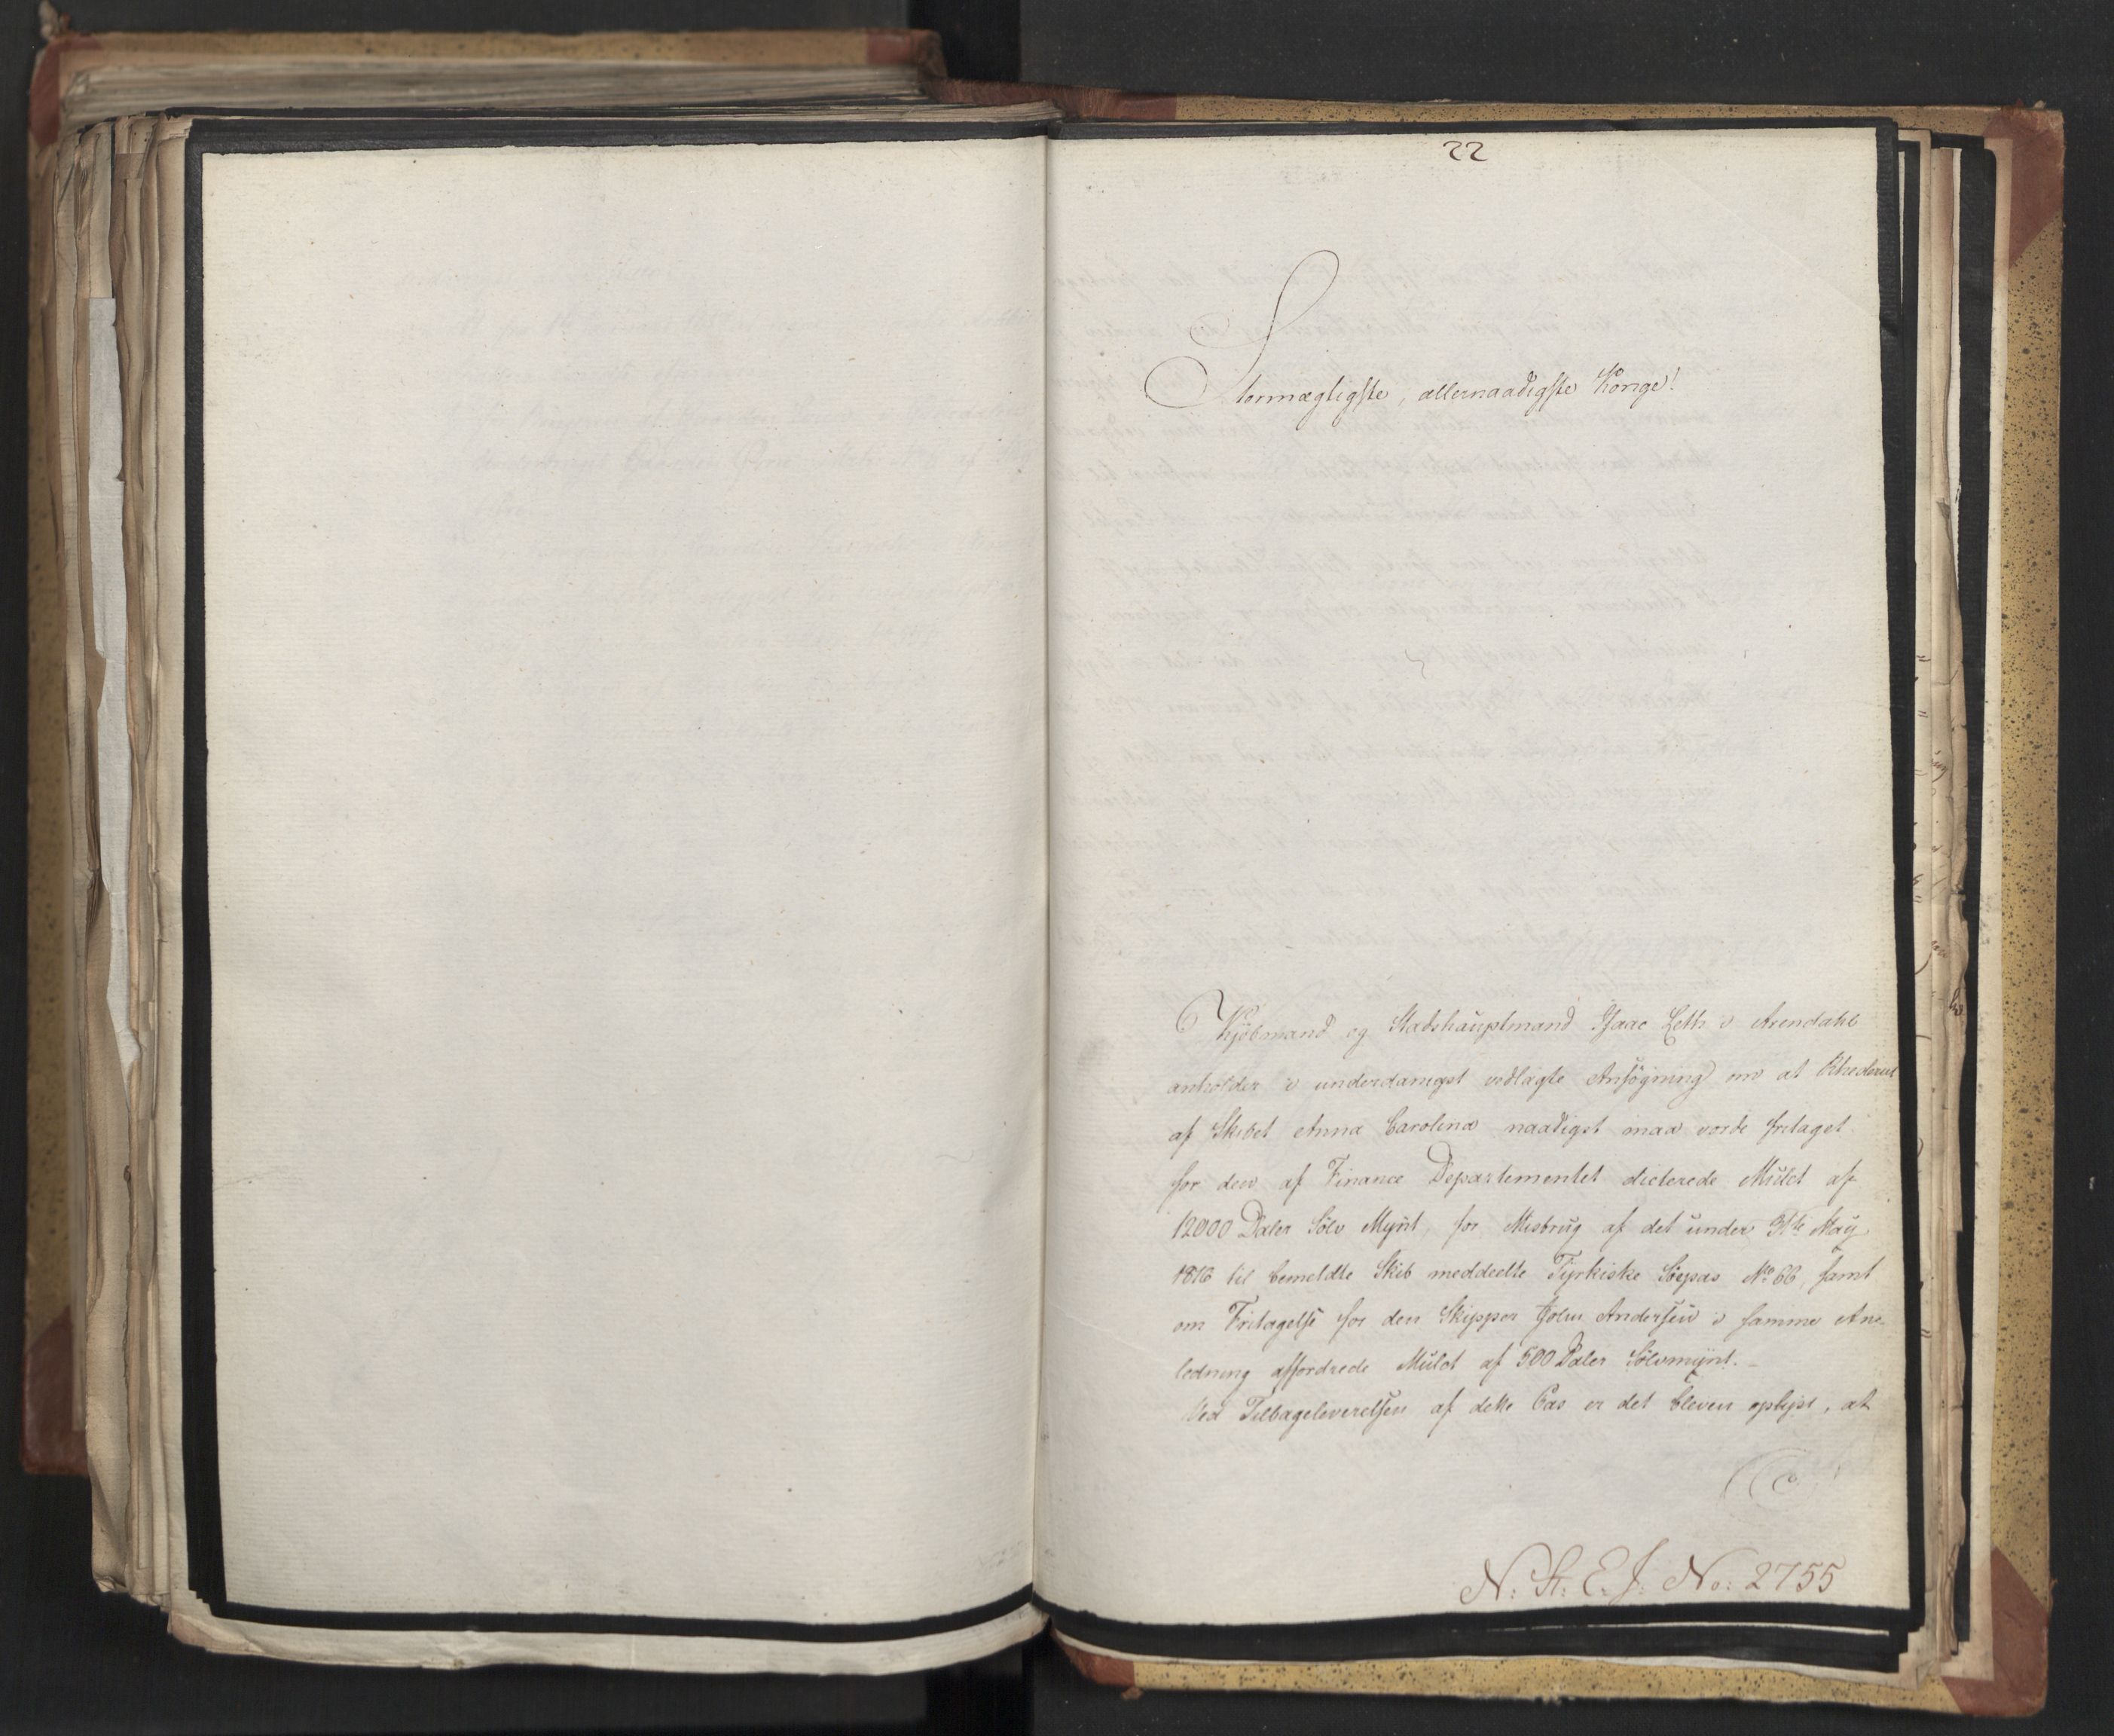 22
Stormægtigste, allernaadigste Konge!
Kjøbmand og Stadshauptmand Isaac Leth i Arendahl
anholder i underdanigst vedlagte Ansøgning om at Rhederiet
af Skibet Anna Carolina naadigst maa vorde fritaget
for den af Finance Departementet dicterede Mulct af
12000 Daler Sølv Mynt, for Misbrug af det under May
1816 til bemeldte Skib meddeelte Tyrkiske Søepas No 66, samt
om Fritagelse for den Skipper John Andersen i samme An-
ledning affordrede Mulct af 500 Daler Sølvmynt.
Ved Tilbageleverelsen af dette Pas er det bleven oplyst, at
N: St: E: J: No: 2755